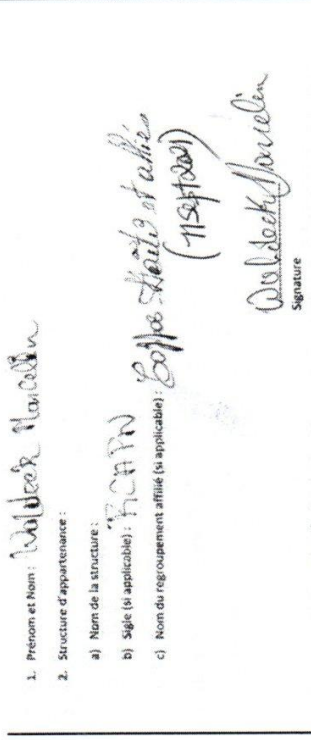 1. Prénom et Nom : Waldeck Marcelin
2. Structure d'appartenance :
a) Nom de la structure :
b) Sigle (si applicable) :
c) Nom du regroupement affilié (si applicable) : Haïti et alliés
(11 Sept 2021)
Waldeck Marcelin
Signature